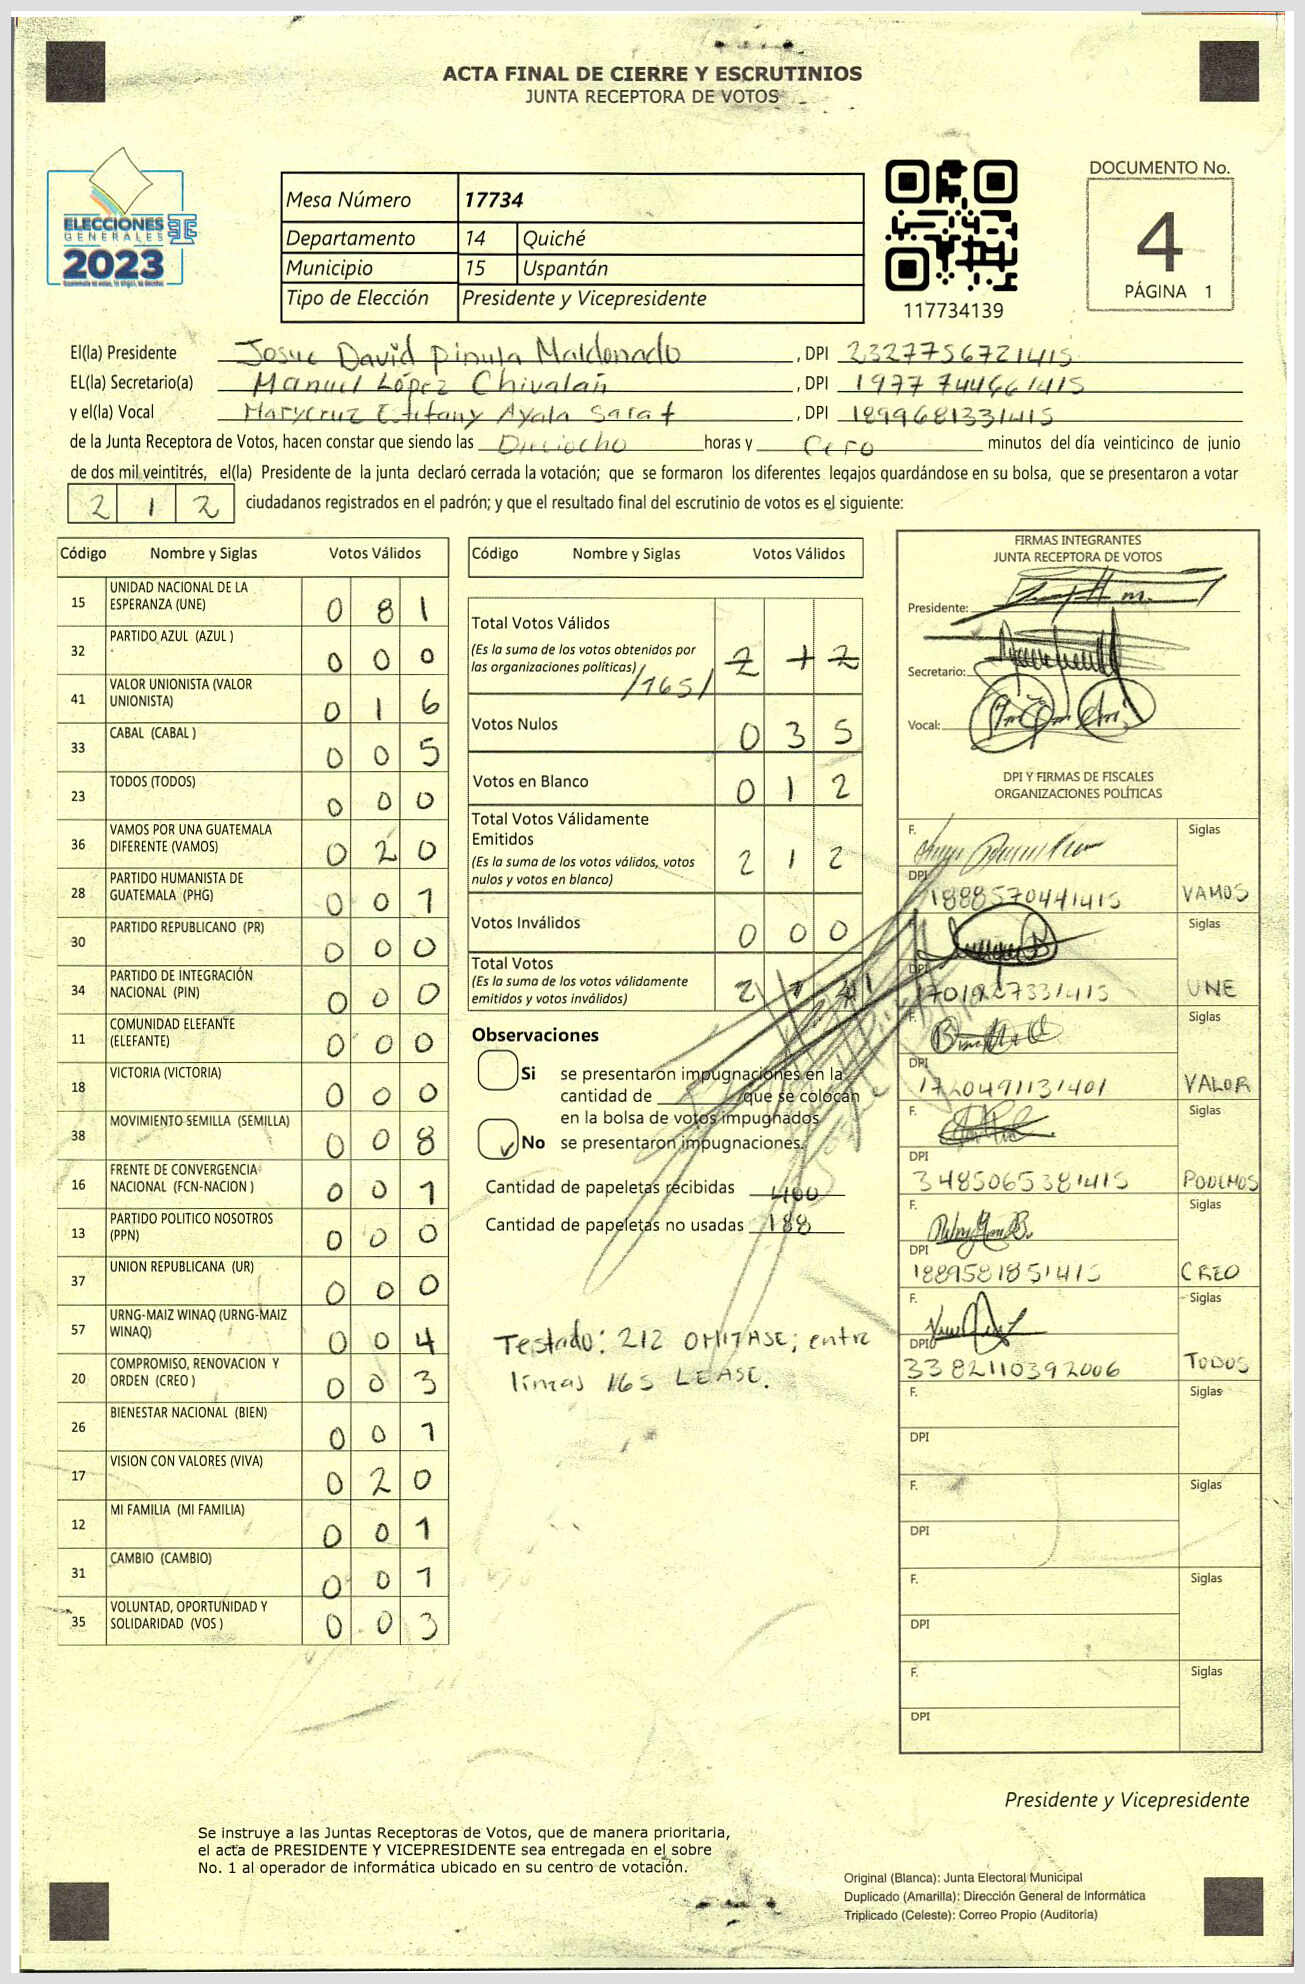 ACTA FINAL DE CIERRE Y ESCRUTINIOS
JUNTA RECEPTORA DE VOTOS
ELECCIONES
GENERALES
2023
Mesa Número 17734
Departamento 14 Quiché
Municipio 15 Uspantán
Tipo de Elección Presidente y Vicepresidente
117734139
DOCUMENTO No.
4
PÁGINA 1
El(la) Presidente Josue David Pinula Maldonado, DPI 2327756721415
EL(la) Secretario(a) Manuel López Chivalán, DPI 1977744661415
y el(la) Vocal Marycruz Estefany Ayala Sarat, DPI 1899681331415
de la Junta Receptora de Votos, hacen constar que siendo las Dieciocho horas y Cero minutos del día veinticinco de junio
de dos mil veintitrés, el(la) Presidente de la junta declaró cerrada la votación; que se formaron los diferentes legajos guardándose en su bolsa, que se presentaron a votar
212 ciudadanos registrados en el padrón; y que el resultado final del escrutinio de votos es el siguiente:
Código Nombre y Siglas Votos Válidos
15 UNIDAD NACIONAL DE LA ESPERANZA (UNE) 0 8 1
32 PARTIDO AZUL (AZUL ) 0 0 0
41 VALOR UNIONISTA (VALOR UNIONISTA) 0 1 6
33 CABAL (CABAL ) 0 0 5
23 TODOS (TODOS) 0 0 0
36 VAMOS POR UNA GUATEMALA DIFERENTE (VAMOS) 0 2 0
28 PARTIDO HUMANISTA DE GUATEMALA (PHG) 0 0 1
30 PARTIDO REPUBLICANO (PR) 0 0 0
34 PARTIDO DE INTEGRACIÓN NACIONAL (PIN) 0 0 0
11 COMUNIDAD ELEFANTE (ELEFANTE) 0 0 0
18 VICTORIA (VICTORIA) 0 0 0
38 MOVIMIENTO SEMILLA (SEMILLA) 0 0 8
16 FRENTE DE CONVERGENCIA NACIONAL (FCN-NACION ) 0 0 1
13 PARTIDO POLITICO NOSOTROS (PPN) 0 0 0
37 UNION REPUBLICANA (UR) 0 0 0
57 URNG-MAIZ WINAQ (URNG-MAIZ WINAQ) 0 0 4
20 COMPROMISO, RENOVACION Y ORDEN (CREO ) 0 0 3
26 BIENESTAR NACIONAL (BIEN) 0 0 1
17 VISION CON VALORES (VIVA) 0 2 0
12 MI FAMILIA (MI FAMILIA) 0 0 1
31 CAMBIO (CAMBIO) 0 0 1
35 VOLUNTAD, OPORTUNIDAD Y SOLIDARIDAD (VOS ) 0 0 3
Código Nombre y Siglas Votos Válidos
Total Votos Válidos 2 1 2
(Es la suma de los votos obtenidos por
las organizaciones políticas) /165/
Votos Nulos 0 3 5
Votos en Blanco 0 1 2
Total Votos Válidamente
Emitidos 2 1 2
(Es la suma de los votos válidos, votos
nulos y votos en blanco)
Votos Inválidos 0 0 0
Total Votos
(Es la suma de los votos válidamente
emitidos y votos inválidos)
Observaciones
Si se presentaron impugnaciones en la
cantidad de ______ que se colocan
en la bolsa de votos impugnados
No se presentaron impugnaciones.
Cantidad de papeletas recibidas 400
Cantidad de papeletas no usadas 188
Testado: 212 OMITASE; entre
lineas 165 LEASE.
FIRMAS INTEGRANTES
JUNTA RECEPTORA DE VOTOS
Presidente:
Secretario:
Vocal:
DPI Y FIRMAS DE FISCALES
ORGANIZACIONES POLÍTICAS
F. Siglas
DPI 1888570441415 VAMOS
F. Siglas
DPI UNE
F. Siglas
DPI 1720491131401 VALOR
F. Siglas
DPI 3485065381415 PODEMOS
F. Siglas
DPI 1889581851415 CREO
F. Siglas
DPI 3382110392006 TODOS
F. Siglas
DPI
F. Siglas
DPI
F. Siglas
DPI
F. Siglas
DPI
Presidente y Vicepresidente
Se instruye a las Juntas Receptoras de Votos, que de manera prioritaria,
el acta de PRESIDENTE Y VICEPRESIDENTE sea entregada en el sobre
No. 1 al operador de informática ubicado en su centro de votación.
Original (Blanca): Junta Electoral Municipal
Duplicado (Amarilla): Dirección General de Informática
Triplicado (Celeste): Correo Propio (Auditoria)